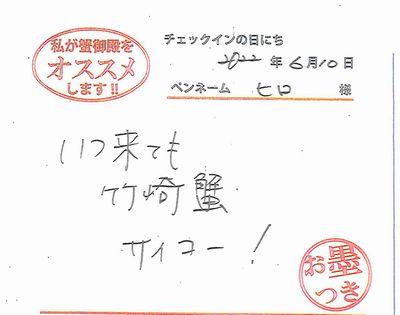 私が蟹御殿を
オススメ
します!!
チェックインの日にち
2022年6月10日
ペンネーム ヒロ 様
いつ来ても
竹崎蟹
サイコー!
お墨
つき